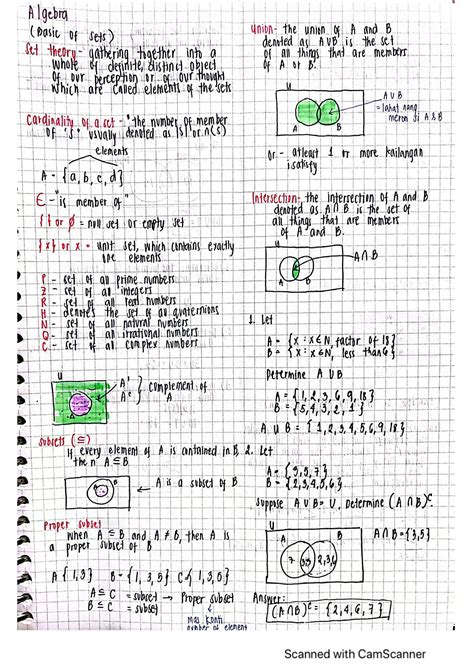 Algebra
(Basic of Sets)
Set theory - gathering together into a
whole of definite, distinct object
of our perception or of our thought
which are called elements of the sets
Cardinality of a set - the number of member
of "S" usually denoted as |S| or n(S)
elements
A = {a, b, c, d}
∈ - "is member of"
{ } or ∅ = null set or empty set
{x} or x = unit set, which contains exactly
one elements
P - set of all prime numbers
Z - set of all integers
R - set of all real numbers
H - denotes the set of all quaternions
N - set of all natural numbers
Q - set of all irrational numbers
C - set of all complex numbers
U
A'
Aᶜ } complement of
A
Subsets (⊆)
If every element of A is contained in B,
then A ⊆ B
A B
← A is a subset of B
Proper subset
when A ⊆ B and A ≠ B, then A is
a proper subset of B
A {1,3} B = {1, 3, 5} C {1, 3, 5}
A ⊆ C = subset → Proper subset
B ⊆ C = subset
mas konti
number of element
Union - the union of A and B
denoted as A∪B is the set
of all things that are members
of A or B.
U
A B
A ∪ B
= lahat nang
meron si A & B
or - atleast 1 or more kailangan
isatisfy
Intersection - the intersection of A and B
denoted as A ∩ B is the set of
all things that are members
of A and B.
U
A B
A ∩ B
1. Let
A = {x : x ∈ N, factor of 18}
B = {x : x ∈ N, less than 6}
Determine A ∪ B
A = {1, 2, 3, 6, 9, 18}
B = {5, 4, 3, 2, 1}
A ∪ B = {1, 2, 3, 4, 5, 6, 9, 18}
2. Let
A = {3, 5, 7}
B = {2, 3, 4, 5, 6}
Suppose A ∪ B = U, Determine (A ∩ B)ᶜ
U
A B
7 3,5 2,4,6
A ∩ B = {3,5}
Answer:
(A ∩ B)ᶜ = {2, 4, 6, 7}
Scanned with CamScanner